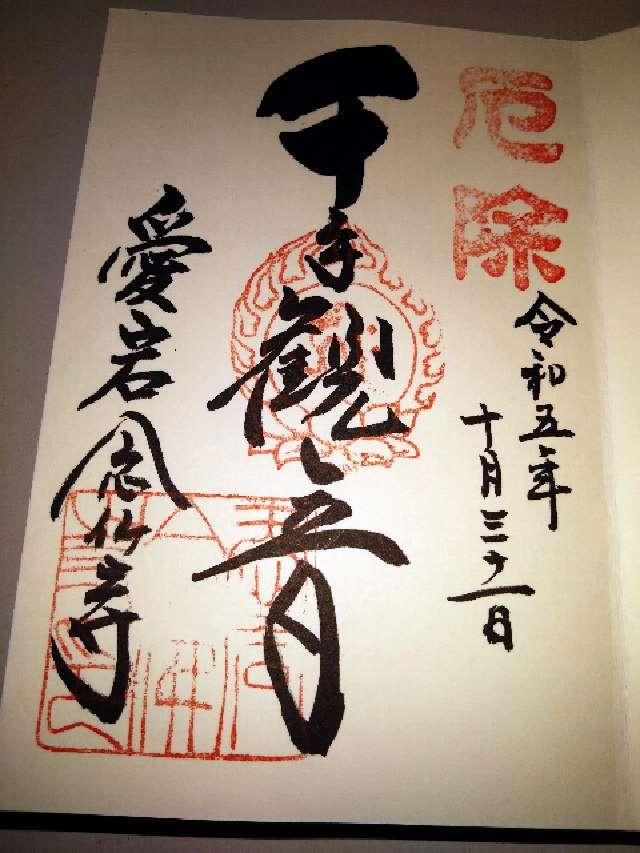 厄除
令和五年
十月三十一日
千手観音
愛宕念仏寺